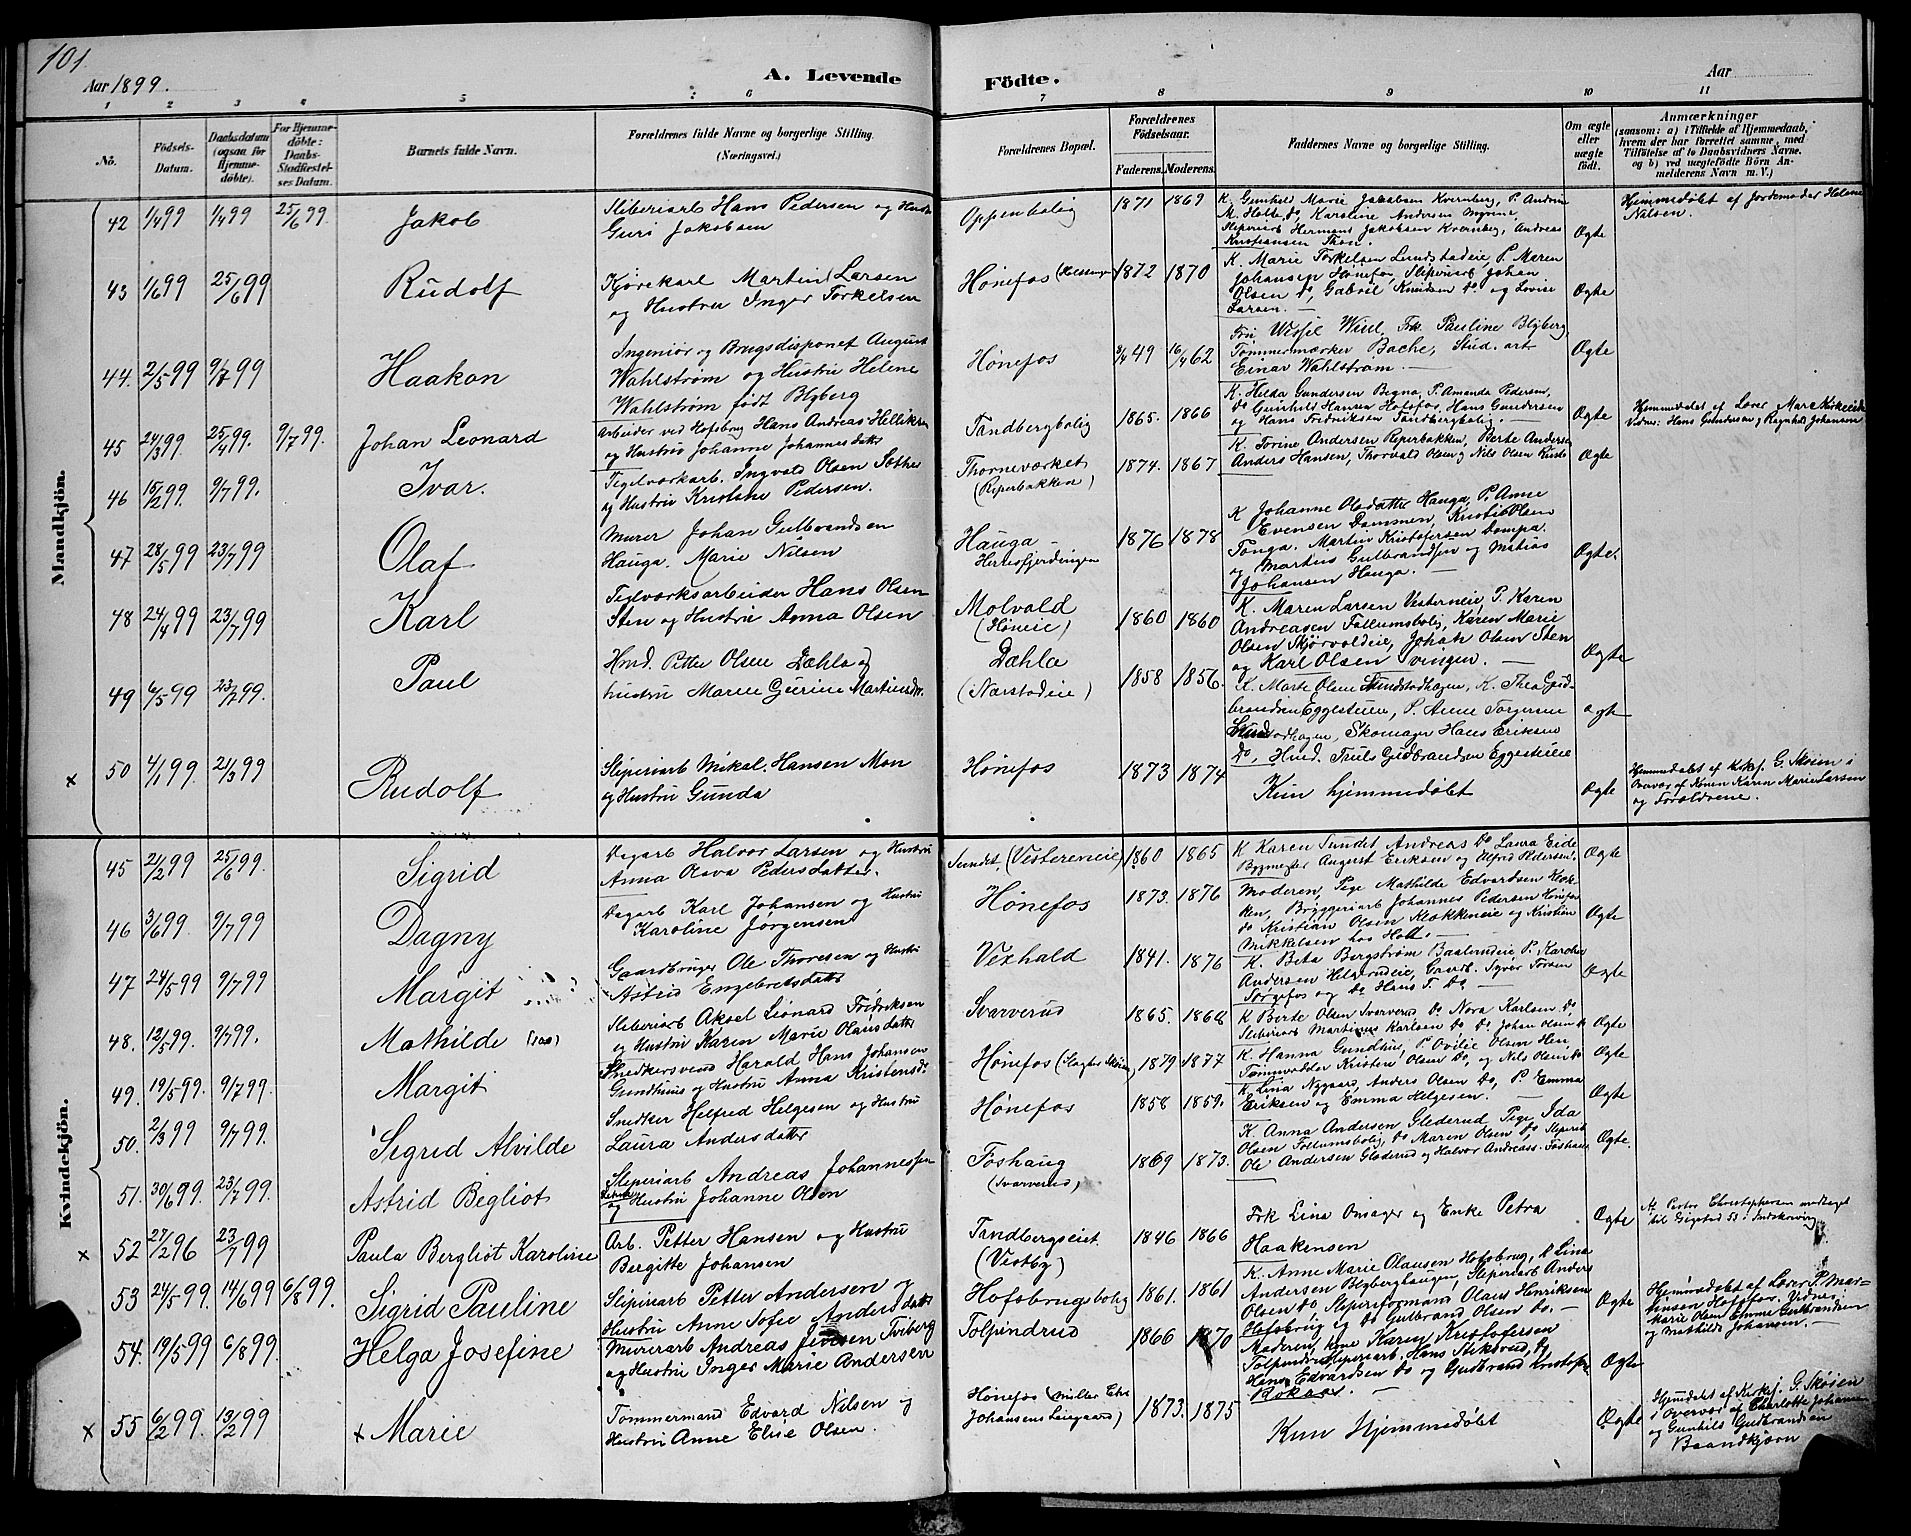 101.
Aar 1899.
A. Levende Födte.
Aar
1 2 3 4 5 6 7 8 9 10 11
No.
Födsels-Datum.
Daabsdatum (ogsaa for Hjemme-döbte).
For Hjemme-döbte: Daabs-Stadfæstel-ses Datum.
Barnets fulde Navn.
Forældrenes fulde Navne og borgerlige Stilling. (Næringsvei.)
Forældrenes Bopæl.
Forældrenes Födselsaar.
Faderens. Moderens.
Faddernes Navne og borgerlige Stilling.
Om ægte eller uægte födt.
Anmærkninger
(saasom: a) i Tilfælde af Hjemmedaab, hvem der har forrettet samme, med Tilföielse af to Daabsvidners Navne. og b) ved uægtefödte Börn An-melderens Navn m. V.)
Mandkjön.
42 1/4 99 1/4 99 25/6 99. Jakob Sliberiarb Hans Pedersen og Hustr Guri Jakobsen Oppenbolig 1871 1869 K. Gunhild Marie Jakobsen Kvernberg, P. Andrine M. Holt do, Karoline Andersen Myrene, Sleperiarb Hermans Jakobsen Kvernberg, Andreas Kristiansen Thon. Ægte Hjemmedøbt af Jordemoder Helene Nilsen.
43 1/6 99 25/6 99 Rudolf Kjørekarl Martin Larsen og Hustru Inger Torkelsen Hønefos 1872 1870 K. Marie Torkelsen Lundstadeie, P. Maren Johansen Hønefos, Sliperiarb Johan Olsen do, Gabriel Knudsen do og Lovise Larsen. Ægte
44. 2/5 99 9/7 99 Haakon Ingeniør og Brugsdisponet August Wahlstrøm og Hustru Helene Wahlstrøm født Blyberg Hønefos 3/4 49 16/4 62 Fru Wessel Wiul, Frk. Pauline Blyberg, Tømmermærker Bache, Stud. art Einar Wahlstrøm. Ægte
45 24/3 99. 25/4 99. 9/7 99. Johan Leonard Arbeider ved Hofsbrug Hans Andreas Helliksen og Hustru Johanne Johannesdatter Tandbergbolig 1865. 1866 K. Hilda Gundersen Begna, P. Amanda Pedersen, do Gunhild Hansen Hofsfos, Hans Gundersen og Hans Fredriksen Tandbergbolig. Ægte Hjemmedøbt af Lærer Mare Kirkeeide Vidner: Hans Gundersen og Ragnhild Johansen
46 15/2 99. 9/7 99. Ivar. Teglværkarb. Ingvald Olsen Sether og Hustru Kristine Pedersen. Thorneværket (Reperbakken) 1874. 1867 K. Torine Andersen Reperbakken, Berte Andersen Anders Hansen, Thorvald Olsen og Nils Olsen Ægte
47 28/5 99 23/7 99 Olaf Murer Johan Gulbrandsen Hauga. Marie Nilsen Hauga - Hertesfjerdingen 1876 1878 K Johanne Olsdatter Hauga, P. Anne Evensen Dammen, Kristi Olsen Tonga. Martin Kristofersen Dompa. og Martius Gulbrandsen og Matias Johansen Hauga. Ægte.
48 24/4 99 23/7 99 Karl Teglværksarbeider Hans Olsen Sten og Hustru Anna Olsen Molvald (Høneie) 1860 1860 K. Maren Larsen Vesterneie, P. Karen Andreasen Follumsbolig, Karen Marie Olsen Skjørvoldeie, Johan Olsen Sten og Karl Olsen Svingen. Ægte
49 6/5 99 23/7 99. Paul Hmd. Petter Olsen Dæhla og hustru Maren Gurine Martinsdr. Dæhla (Nærstadeie) 1858 1856. K. Marte Olsen Lundstadhagen, K. Thea Gud-brandsen Eggesteien, P. Anne Torgersen Lundstadhagen, Skomager Hans Eriksen do, Hmd. Truls Gudbrandsen Eggesteien ægte
x 50 4/1 99. 2/3 99 Rudolf Sliperiarb Mikal. Hansen Mon og Hustru Gunda Hønefos 1873 1874 Kun hjemmedøbt Ægte Hjemmedøbt af Kirkes. G. Skøien i Overvær af Konen Karen Marie Larsen og Forældrene.
Kvindekjön.
45 21/2 99 25/6 99. Sigrid Dagarb Halvor Larsen og Hustru Anna Olava Pedersdatter. Sundet, (Vesterneie) 1860 1865 K Karen Sundet Andreas do Laura Eide Bygmester August Eriksen og Alfred Pedersen. Ægte
46 3/6 99. 9/7 99 Dagny Dagarb Karl Johansen og Hustru Karoline Jørgensen Hønefos 1873. 1876 Moderen, Pige Mathilde Edvardsen Klok-ken, Bryggeriarb Johannes Pedersen Hønefos do Kristian Olsen Klokkeneie og Kristian Mikkelsen hos Holt. Ægte
47 24/5 99 9/7 99 Margit Gaardbruger Ole Thoresen og Hustru Astrid Engebretsdatter Vexhald 1841. 1876 K. Beta Bergstrøm Baalerudeie P. Karoline Andersen Helgerudeie, Gaardb. Syver Toresen Sørgefos og do Hans T. do Ægte
48. 12/5 99. 9/7 99. Mathilde Sliberiarb Aksel Leonard Fredriksen og Hustru Karen Marie Olausdatter Svarverud 1865. 1868 K Berte Olsen Svarverud do Nora Karlsen do Sleberiarb Martinus Karlsen do do Johan Olsen do Ægte
49. 19/5 99. 9/7 99. Margit Snedkersvend Harald Hans Johansen Gundhus og Hustru Anna Kristensdr Hønefos (Slagter Skøien) 1879 1877 K. Hanna Gundhus, P Ovilie Olsen Hen, Tømmerødder Kristen Olsen do, og Nils Olsen do Ægte
50. 2/3 99 9/7 99. Sigrid Alvilde Snedker Helfred Helgesen og Hustru Laura Andersdatter Hønefos 1858 1859. K. Lina Nygaard, Anders Olsen do, P. Emma Eriksen og Emma Helgesen. Ægte
51. 30/6 99. 23/7 99. Astrid Begliot Sleperiarb Andreas Johannessen og Hustru Johanne Olsen Foshaug (Svarverud) 1869 1873. K. Anna Andersen Gléderud, Pige Ida Olsen Follumsbolig, do Maren Olsen do Sleperiarb Ole Andersen Glederud og Halvor Andreass. Foshaug Ægte.
x 52 27/2 96 23/7 99 Paula Bergliot Karoline Arb. Petter Hansen og Hustru Bergitte Johansen Tandbergseiet. (Vestby) 1846 1866 Frk Lina Omsager og Enke Petra Haakensen Ægte Af Pastor Christophersen modtaget til 53 : Indskrivning
53 24/5 99. 14/6 99 6/8 99. Sigrid Pauline Slipiriarb Petter Andersen og Hustru Anne Sofie Andersdatter Hofsbrugsbolig 1861. 1861 K. Anne Marie Olausen Hofsbrug, P Lina Andersen Blybergshaugen, Sleperiarb Anders Olsen do, Slepereformand Olaus Henriksen Hofsbrug og do Gulbrand Olsen do. Ægte Hjemmedøbt af Lærer P. Mar-tinsen Hofsfos. Vidner: Marie Olsen Emma Gulbrandsen og Mathilde Johansen.
54. 19/5 99 6/8 99. Helga Josefine Murerarb Andreas Jensen Tviberg og Hustru Inger Marie Andersen Tolpindrud 1866 1870 Moderen, Kone Karen Kristofersen Tolpindrud Sleperiarb. Hans Stiksrud, do Hans Edvardsen do og Gudbrand Kristofers. Ægte
x 55 6/2 99. 13/2 99 x Marie Tømmermand Edvard Nilsen og Hustru Anne Elise Olsen. Hønefos (Møller Chr Johansens Leiegaard) 1873. 1875 Kun Hjemmedøbt Ægte Hjemdøbt af Kirkes. G. Skøien i Overvær af Charlotte Johansen og Gunhild Gudbrandsen Baandkjørn